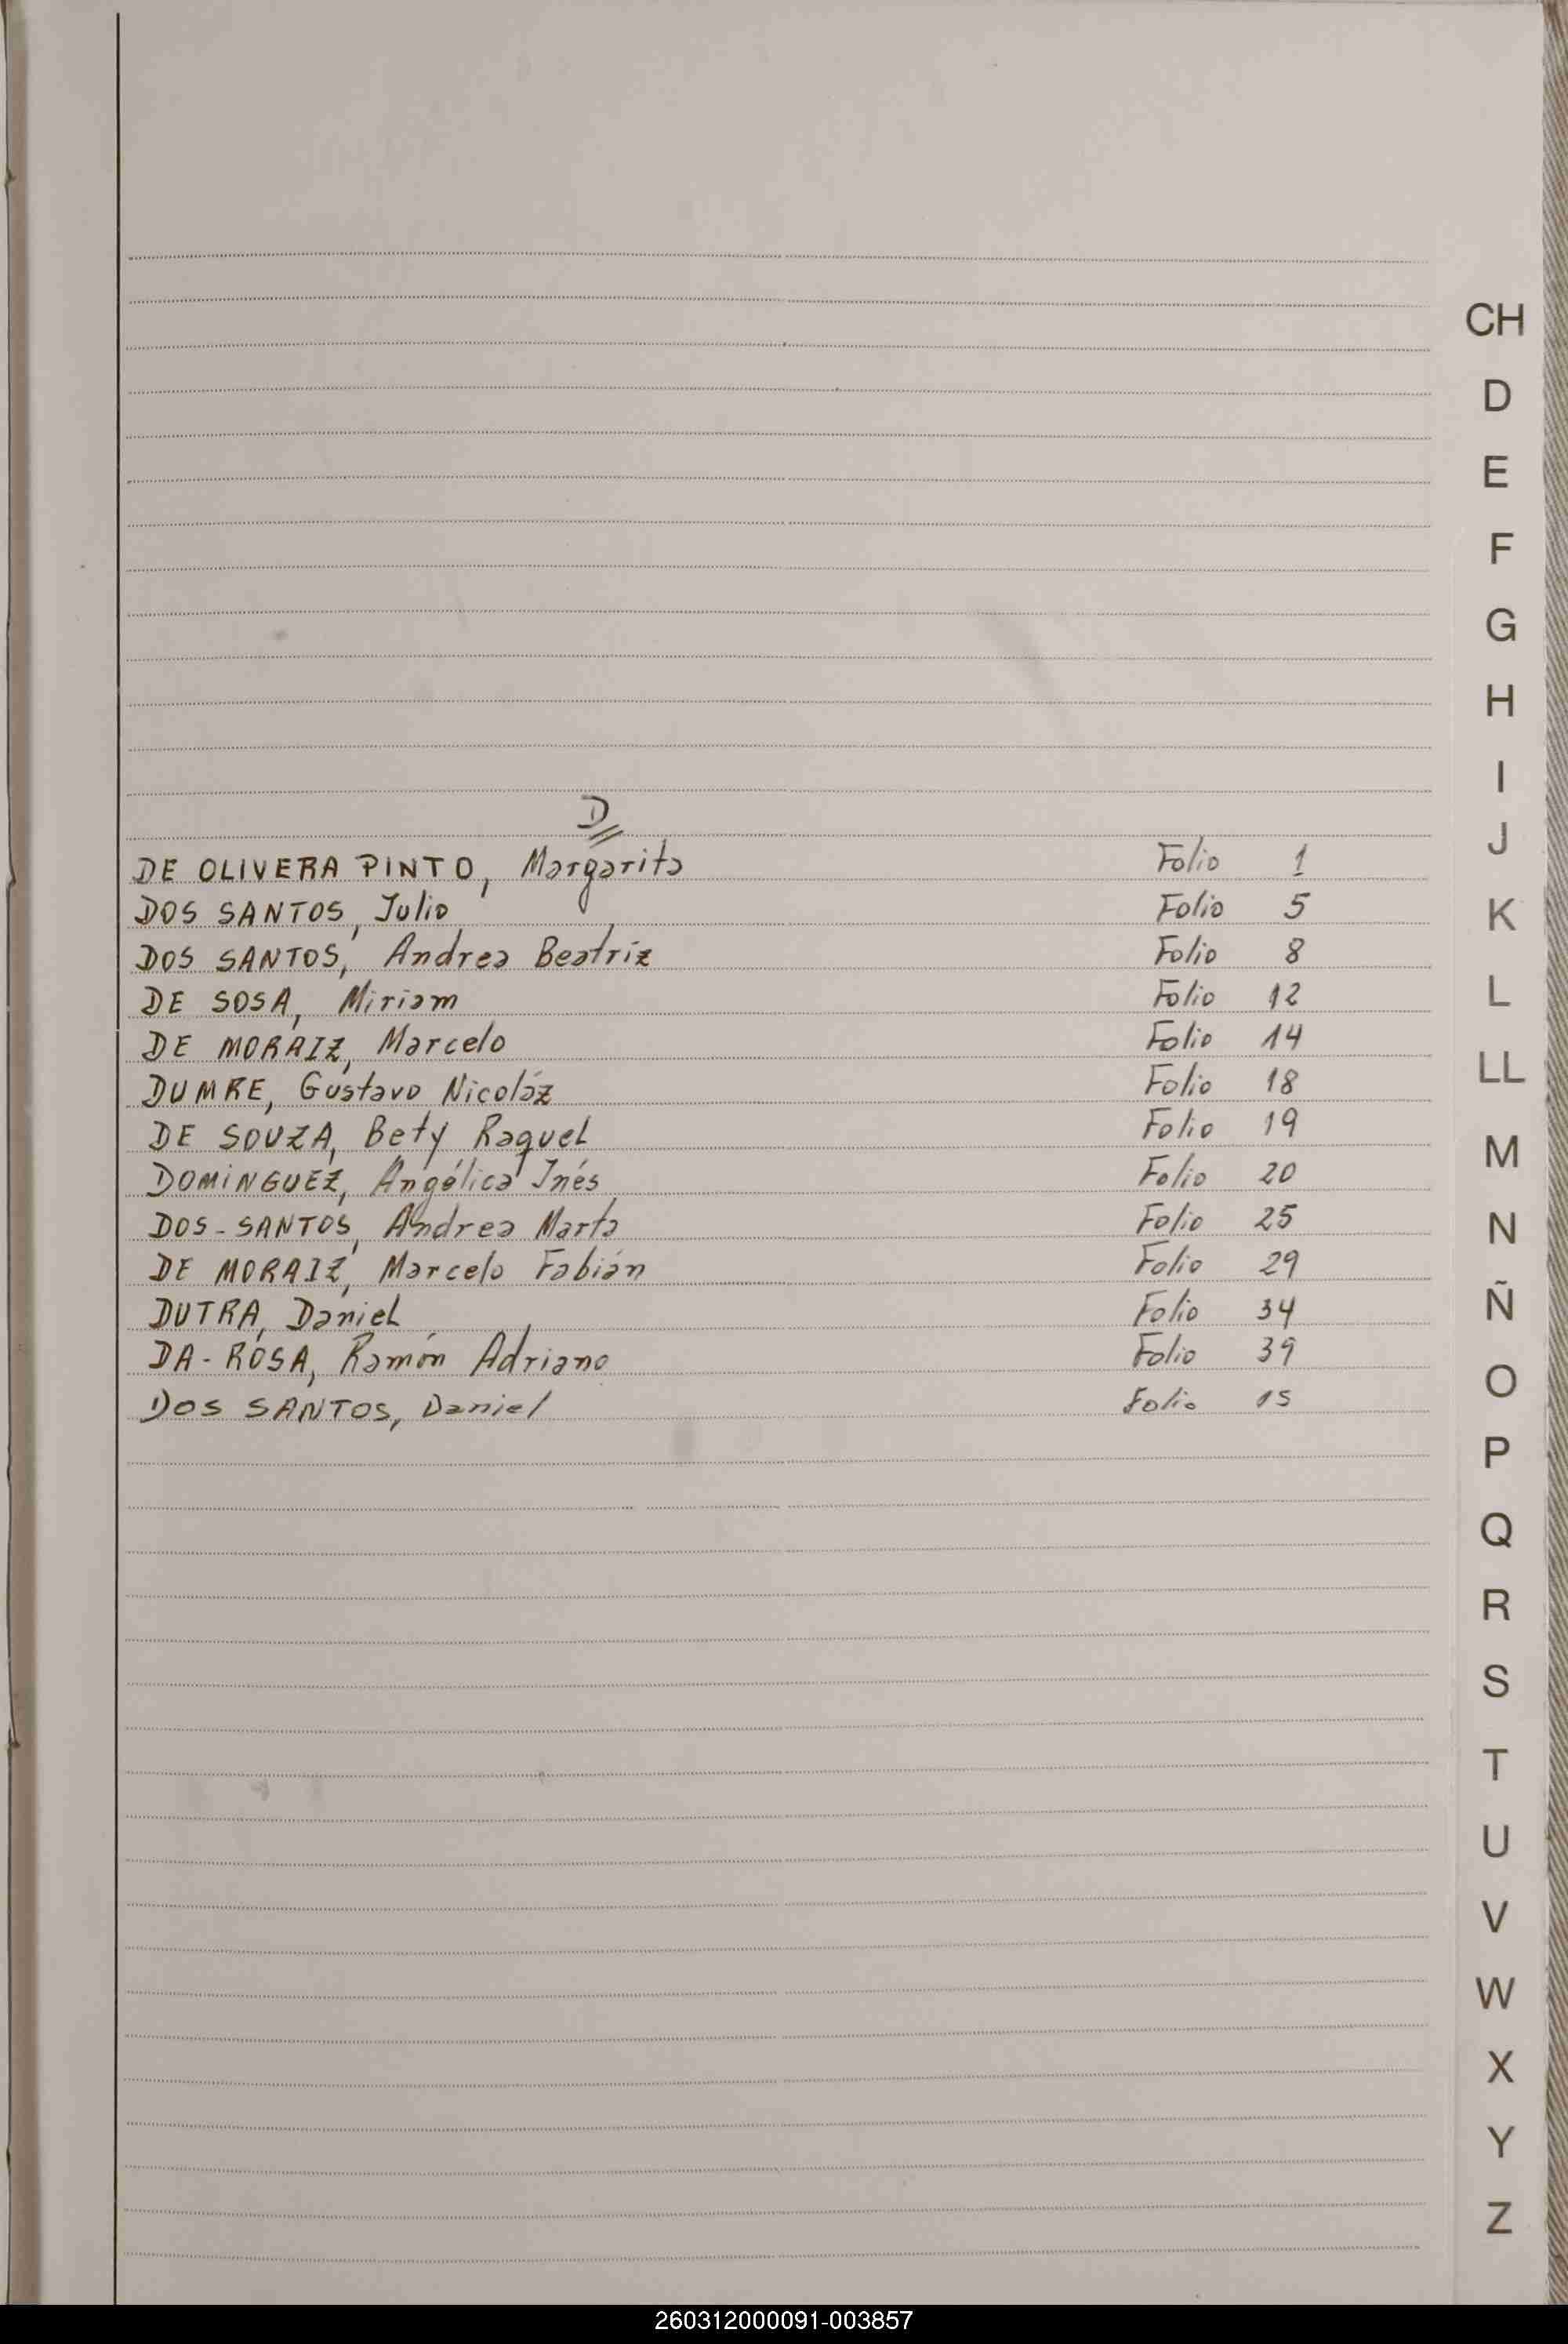 D
DE OLIVERA PINTO, Margarita Folio 1
DOS SANTOS, Julio Folio 5
DOS SANTOS, Andrea Beatríz Folio 8
DE SOSA, Miriam Folio 12
DE MORAIZ, Marcelo Folio 14
DUMKE, Gustavo Nicoláz Folio 18
DE SOUZA, Bety Raquel Folio 19
DOMINGUEZ, Angélica Inés Folio 20
DOS-SANTOS, Andrea Marta Folio 25
DE MORAIZ, Marcelo Fabián Folio 29
DUTRA, Daniel Folio 34
DA-ROSA, Ramón Adriano Folio 39
DOS SANTOS, Daniel Folio 15
CH
D
E
F
G
H
I
J
K
L
LL
M
N
Ñ
O
P
Q
R
S
T
U
V
W
X
Y
Z
260312000091-003857